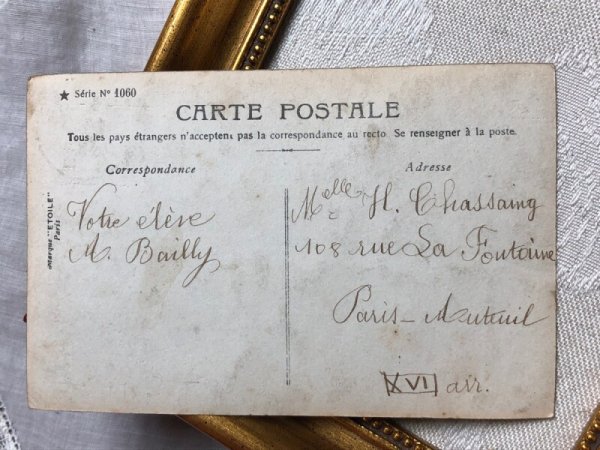 ★ Série Nº 1060
CARTE POSTALE
Tous les pays étrangers n'acceptent pas la correspondance au recto. Se renseigner à la poste.
Correspondance
Adresse
Marque "ETOILE"
Paris
Votre élève
M. Bailly
Melle H. Chassaing
108 rue La Fontaine
Paris - Auteuil
XVI arr.